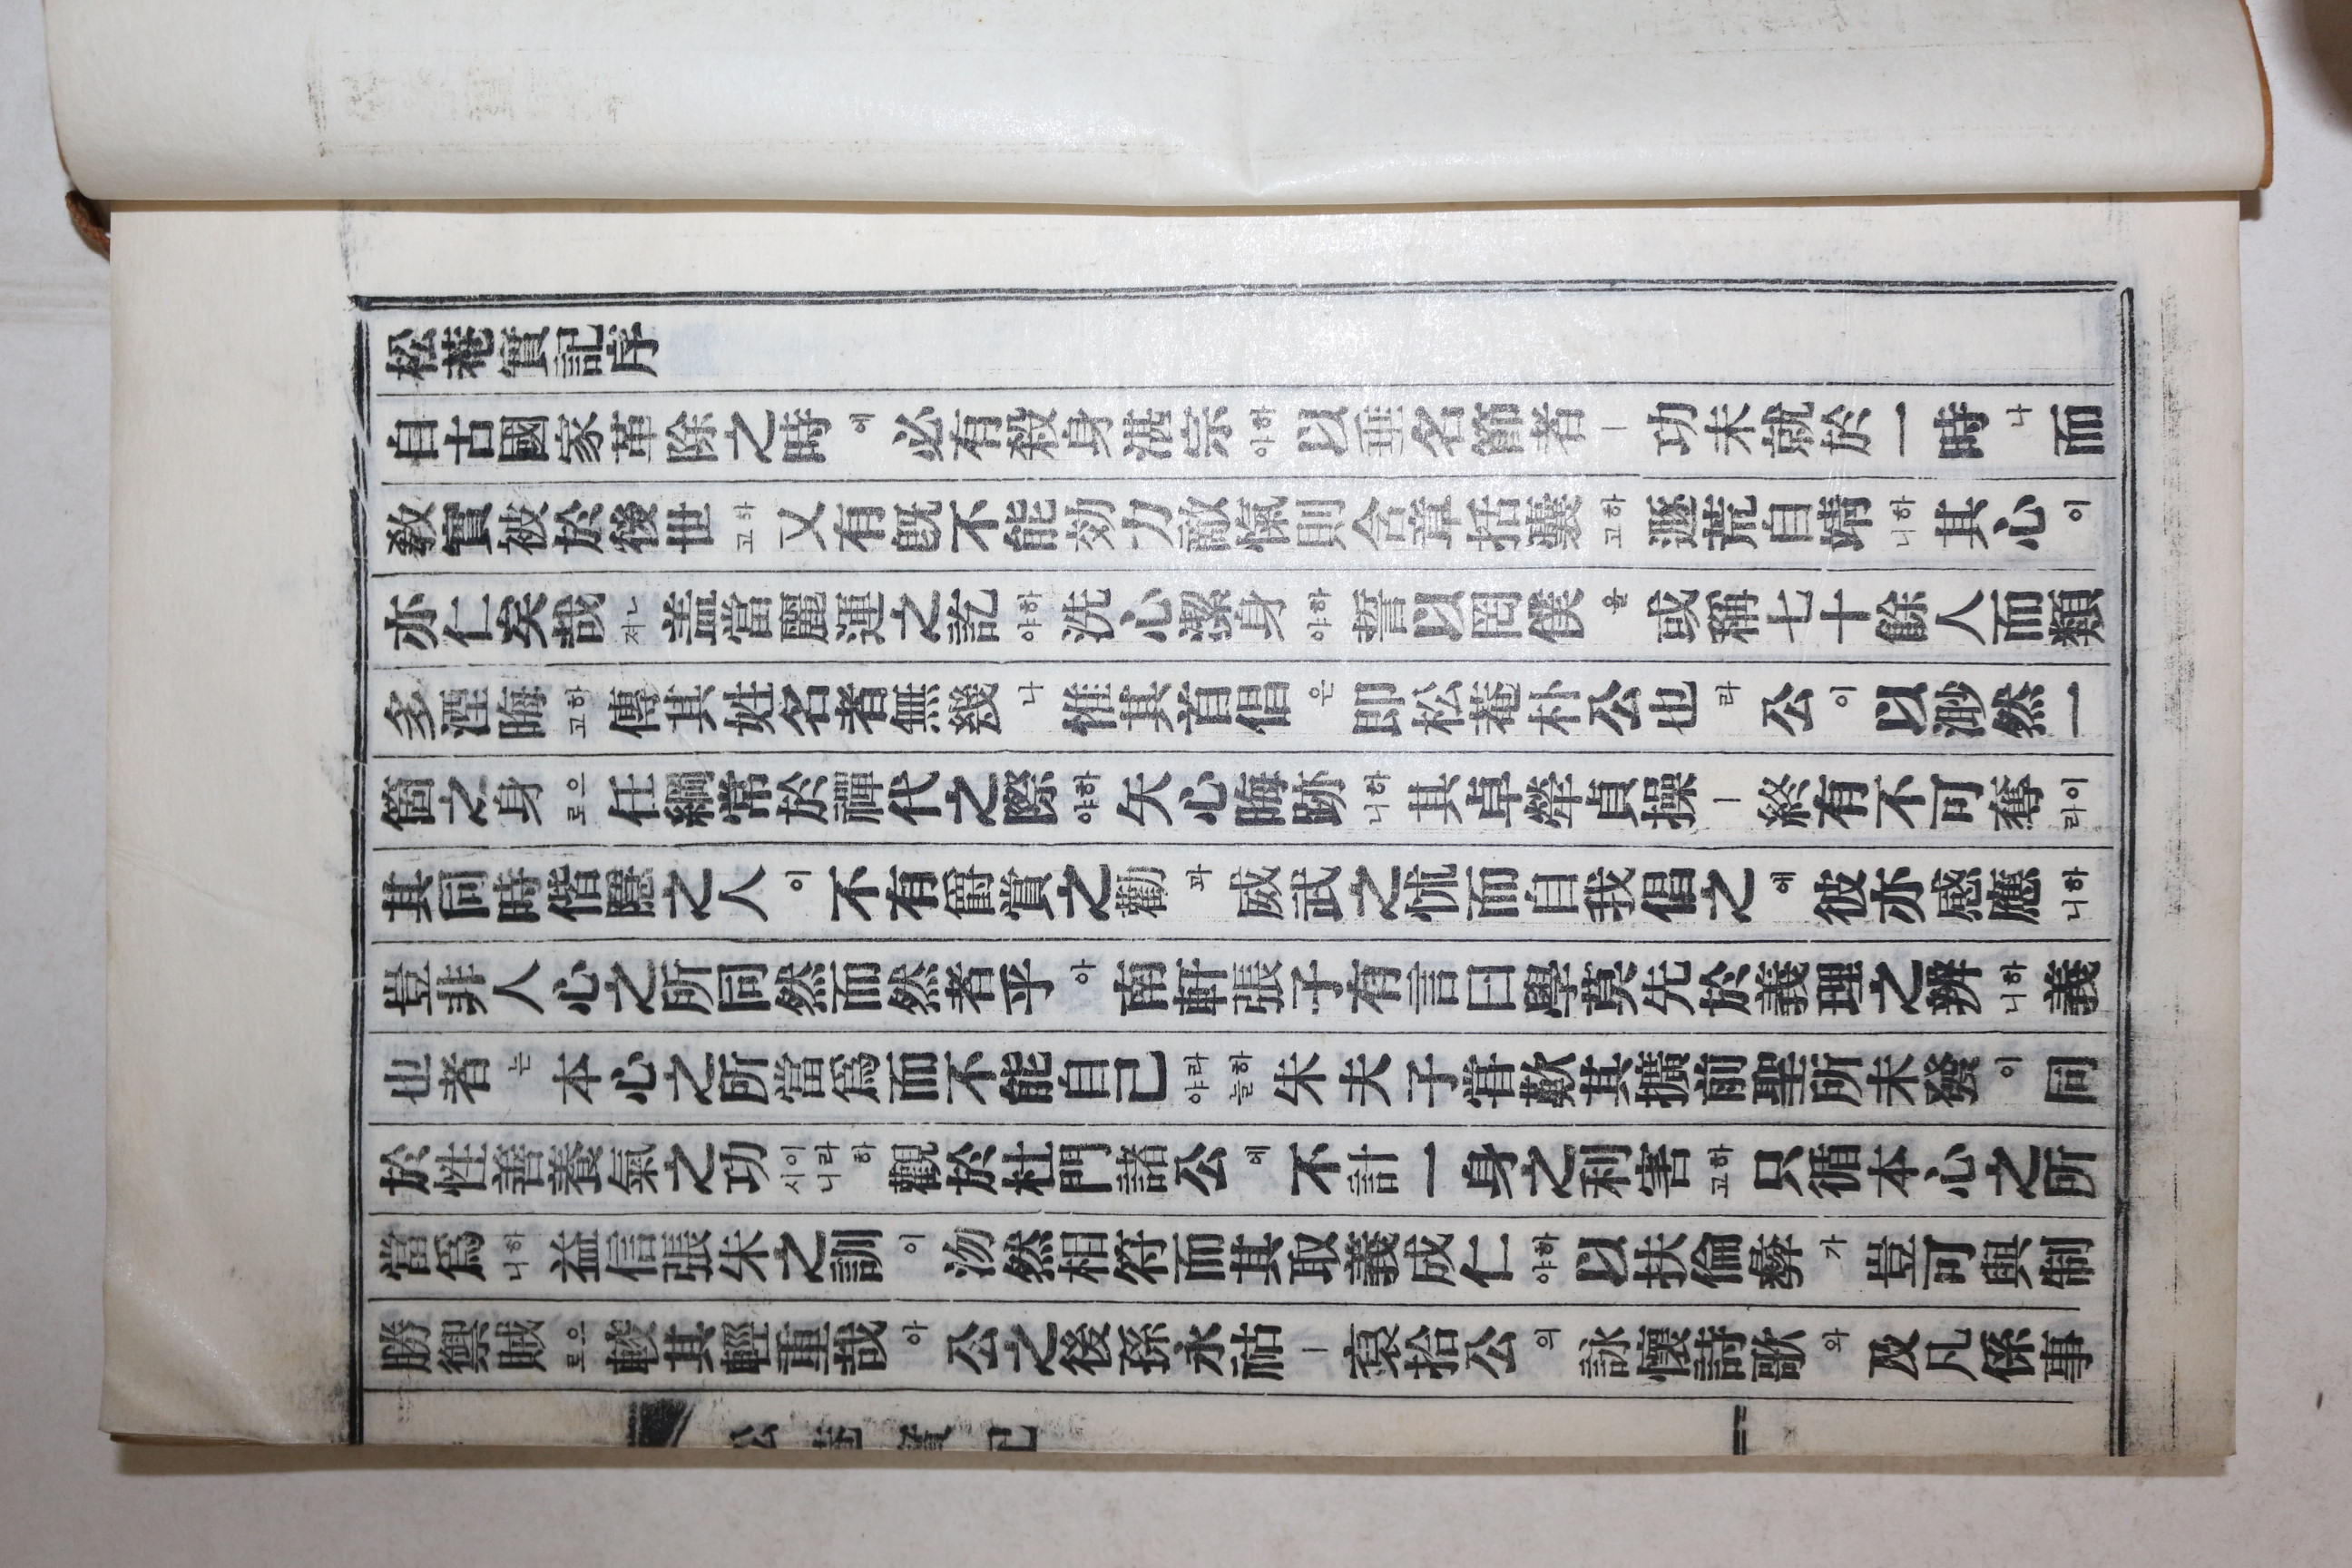 松菴實記序
自古國家革除之時에必有殺身湛宗하야以垂名節者ㅣ功未就於一時나而
敎實被於後世하고又有旣不能効力敵愾則含章括囊하고遯荒自靖하니其心이
亦仁矣哉ㄴ저盖當麗運之訖하야洗心潔身하야誓以罔僕을或稱七十餘人而類
多湮晦하고傳其姓名者無幾나惟其首倡은即松菴朴公也라公이以渺然一
箇之身으로任綱常於禪代之際하야矢心晦跡하니其卓犖貞操ㅣ終有不可奪이라
其同時偕隱之人이不有爵賞之勸과威武之怵而自我倡之에彼亦感應하니
豈非人心之所同然而然者乎아南軒張子有言曰學莫先於義理之辨하니義
也者는本心之所當爲而不能自已라야하늘朱夫子甞歎其擴前聖所未發이同
於性善養氣之功이라하시니觀於杜門諸公에不計一身之利害하고只循本心之所
當爲하니益信張朱之訓이沕然相符而其取義成仁하야以扶倫彜가豈可與制
勝禦賊으로較其輕重哉아公之後孫永祜ㅣ裒拾公의詠懷詩歌와及凡係事
松菴實記